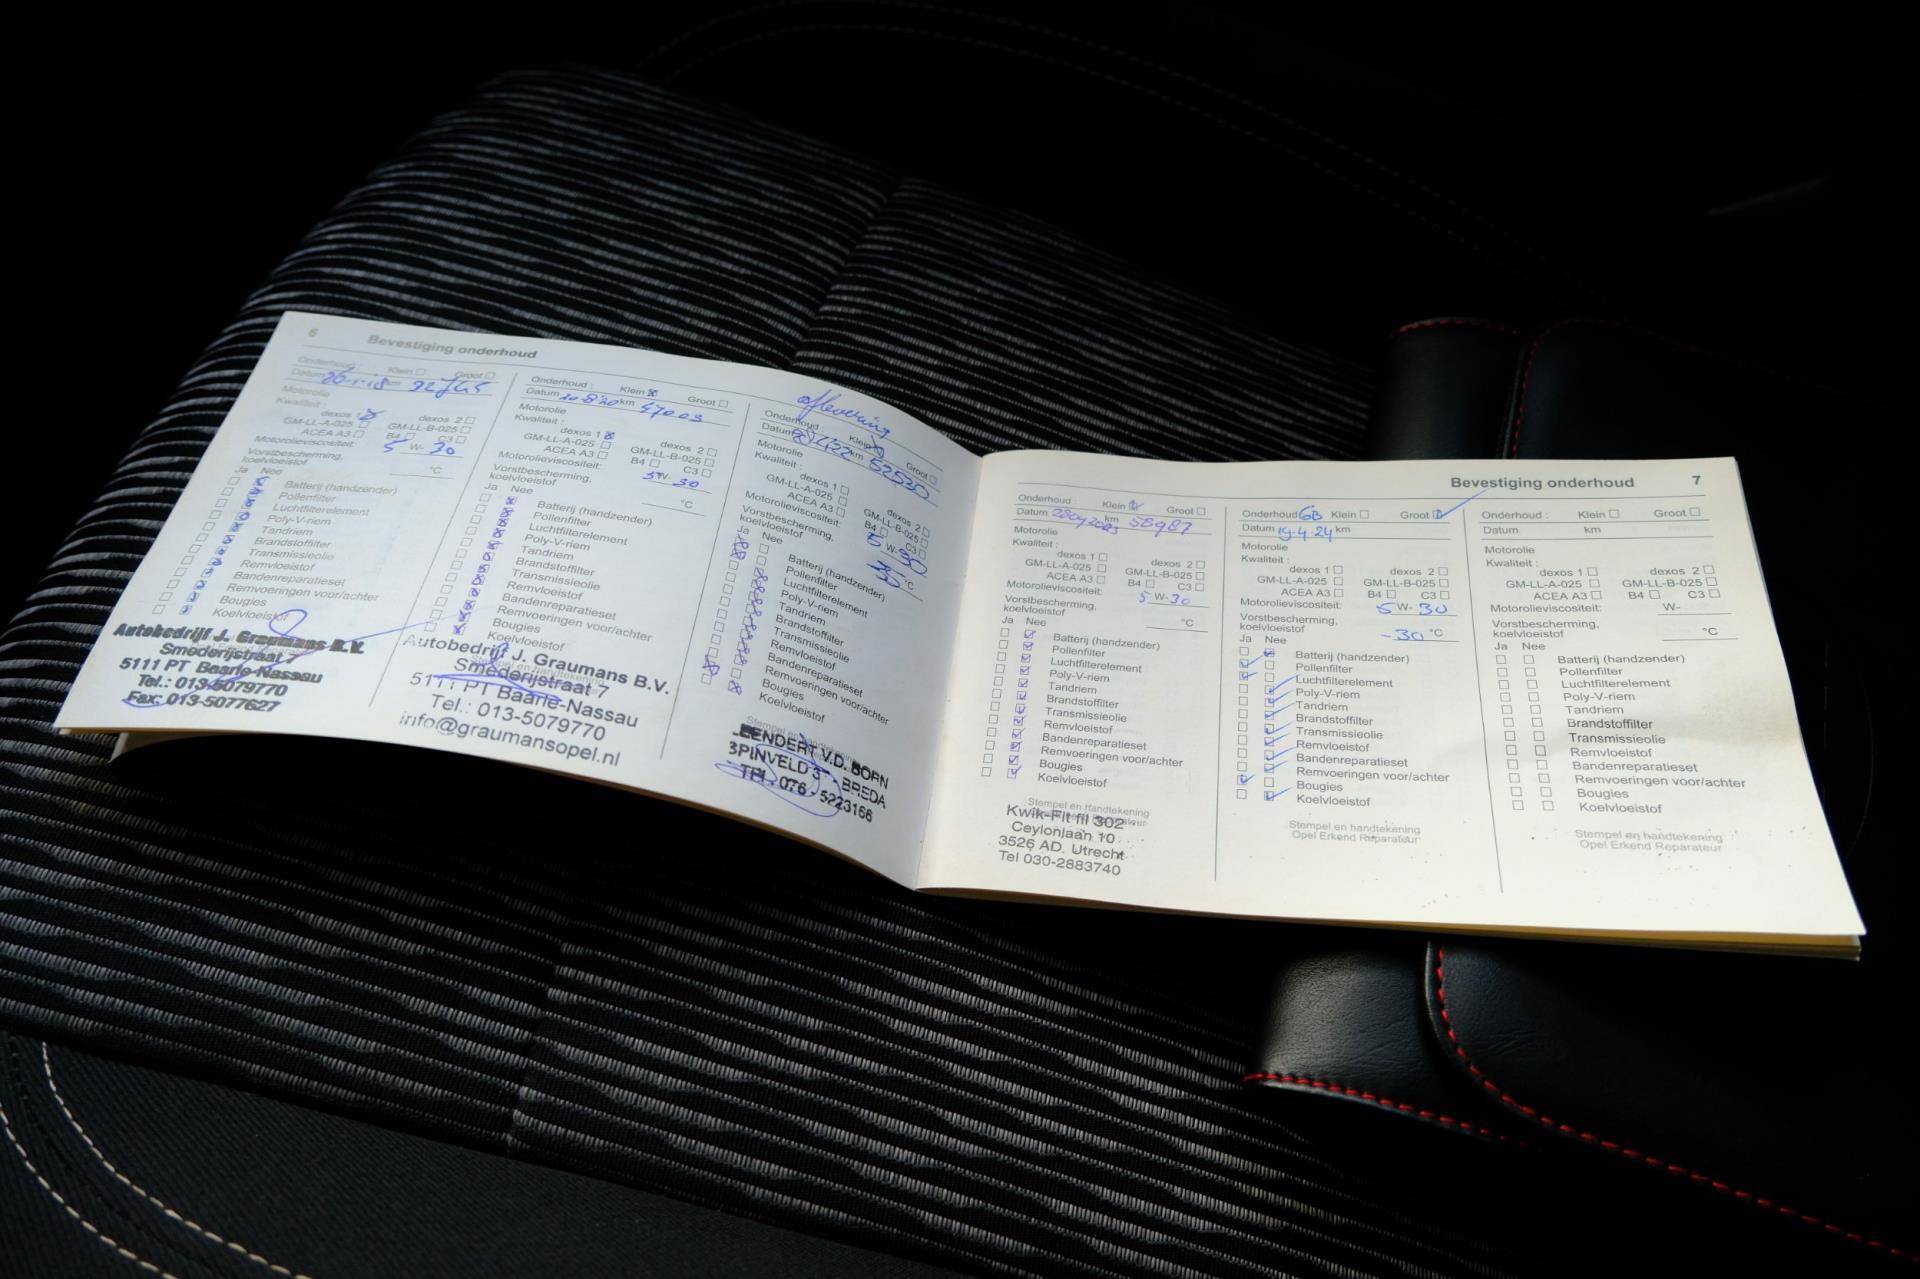 6 Bevestiging onderhoud
Onderhoud : Klein Groot
Datum km
Motorolie
Kwaliteit :
dexos 1 dexos 2
GM-LL-A-025 GM-LL-B-025
ACEA A3 B4 C3
Motorolieviscositeit: 5 W- 30
Vorstbescherming,
koelvloeistof °C
Ja Nee
Batterij (handzender)
Pollenfilter
Luchtfilterelement
Poly-V-riem
Tandriem
Brandstoffilter
Transmissieolie
Remvloeistof
Bandenreparatieset
Remvoeringen voor/achter
Bougies
Koelvloeistof
Autobedrijf J. Graumans B.V.
Smederijstraat 7
5111 PT Baarle-Nassau
Tel.: 013-5079770
Fax: 013-5077627
Onderhoud : Klein Groot
Datum km 47003
Motorolie
Kwaliteit :
dexos 1 dexos 2
GM-LL-A-025 GM-LL-B-025
ACEA A3 B4 C3
Motorolieviscositeit: 5 W- 30
Vorstbescherming,
koelvloeistof °C
Ja Nee
Batterij (handzender)
Pollenfilter
Luchtfilterelement
Poly-V-riem
Tandriem
Brandstoffilter
Transmissieolie
Remvloeistof
Bandenreparatieset
Remvoeringen voor/achter
Bougies
Koelvloeistof
Autobedrijf J. Graumans B.V.
Smederijstraat 7
5111 PT Baarle-Nassau
Tel.: 013-5079770
info@graumansopel.nl
aflevering
Onderhoud : Klein Groot
Datum km 52530
Motorolie
Kwaliteit :
dexos 1 dexos 2
GM-LL-A-025 GM-LL-B-025
ACEA A3 B4 C3
Motorolieviscositeit: 5 W- 30
Vorstbescherming,
koelvloeistof 30 °C
Ja Nee
Batterij (handzender)
Pollenfilter
Luchtfilterelement
Poly-V-riem
Tandriem
Brandstoffilter
Transmissieolie
Remvloeistof
Bandenreparatieset
Remvoeringen voor/achter
Bougies
Koelvloeistof
Stempel en handtekening
LEENDERT V.D. BORN
SPINVELD - BREDA
TEL. 076 - 5223166
Bevestiging onderhoud 7
Onderhoud : Klein Groot
Datum 28042023 km 58987
Motorolie
Kwaliteit :
dexos 1 dexos 2
GM-LL-A-025 GM-LL-B-025
ACEA A3 B4 C3
Motorolieviscositeit: 5 W- 30
Vorstbescherming,
koelvloeistof °C
Ja Nee
Batterij (handzender)
Pollenfilter
Luchtfilterelement
Poly-V-riem
Tandriem
Brandstoffilter
Transmissieolie
Remvloeistof
Bandenreparatieset
Remvoeringen voor/achter
Bougies
Koelvloeistof
Stempel en handtekening
Kwik-Fit fil 302
Ceylonlaan 10
3526 AD. Utrecht
Tel 030-2883740
Onderhoud GB Klein Groot
Datum 19-4-24 km
Motorolie
Kwaliteit :
dexos 1 dexos 2
GM-LL-A-025 GM-LL-B-025
ACEA A3 B4 C3
Motorolieviscositeit: 5 W- 30
Vorstbescherming,
koelvloeistof -30 °C
Ja Nee
Batterij (handzender)
Pollenfilter
Luchtfilterelement
Poly-V-riem
Tandriem
Brandstoffilter
Transmissieolie
Remvloeistof
Bandenreparatieset
Remvoeringen voor/achter
Bougies
Koelvloeistof
Stempel en handtekening
Opel Erkend Reparateur
Onderhoud : Klein Groot
Datum km
Motorolie
Kwaliteit :
dexos 1 dexos 2
GM-LL-A-025 GM-LL-B-025
ACEA A3 B4 C3
Motorolieviscositeit: W-
Vorstbescherming,
koelvloeistof °C
Ja Nee
Batterij (handzender)
Pollenfilter
Luchtfilterelement
Poly-V-riem
Tandriem
Brandstoffilter
Transmissieolie
Remvloeistof
Bandenreparatieset
Remvoeringen voor/achter
Bougies
Koelvloeistof
Stempel en handtekening
Opel Erkend Reparateur